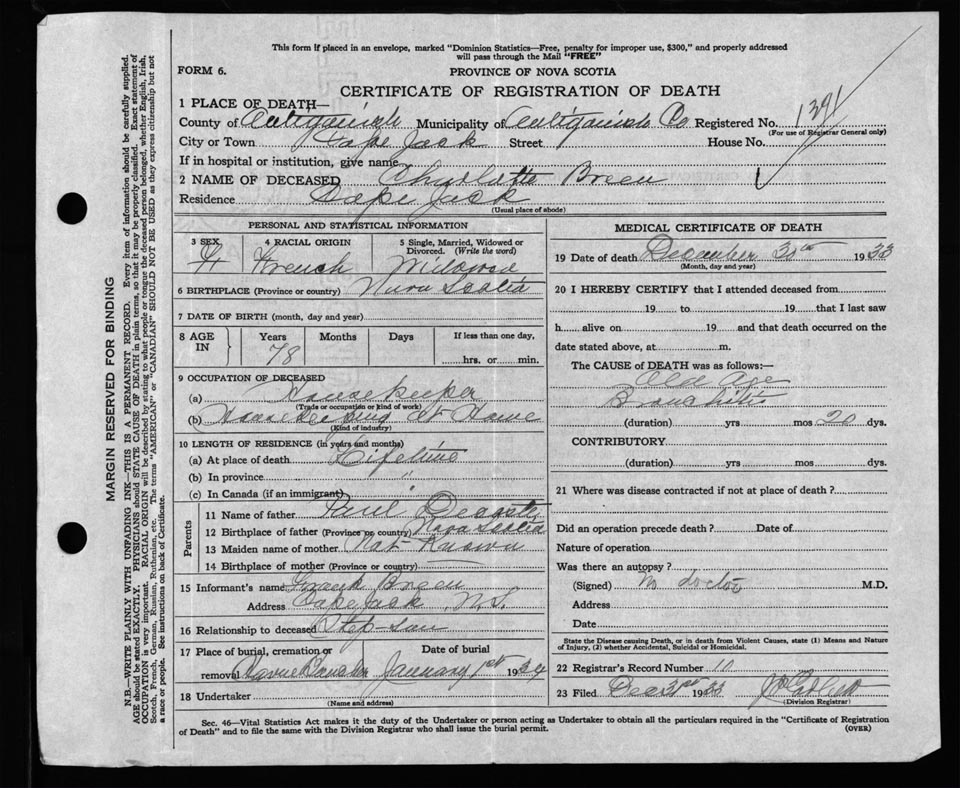 This form if placed in an envelope, marked "Dominion Statistics—Free, penalty for improper use, $300," and properly addressed
will pass through the Mail "FREE"
FORM 6.
PROVINCE OF NOVA SCOTIA
CERTIFICATE OF REGISTRATION OF DEATH
1 PLACE OF DEATH—
County of Antigonish Municipality of Antigonish Co Registered No.
(For use of Registrar General only)
City or Town Cape Jack Street House No.
If in hospital or institution, give name
2 NAME OF DECEASED Charlotte Breen
Residence Cape Jack
(Usual place of abode)
PERSONAL AND STATISTICAL INFORMATION
3 SEX 4 RACIAL ORIGIN 5 Single, Married, Widowed or
Divorced. (Write the word)
F French Widowed
6 BIRTHPLACE (Province or country) Nova Scotia
7 DATE OF BIRTH (month, day and year)
8 AGE IN Years Months Days If less than one day,
78 hrs. or min.
9 OCCUPATION OF DECEASED
(a) Housekeeper
(Trade or occupation or kind of work)
(b) Housekeeping at Home
(Kind of industry)
10 LENGTH OF RESIDENCE (in years and months)
(a) At place of death Lifetime
(b) In province "
(c) In Canada (if an immigrant)
Parents
11 Name of father Paul
12 Birthplace of father (Province or country) Nova Scotia
13 Maiden name of mother Not Known
14 Birthplace of mother (Province or country) —
15 Informant's name Breen
Address Cape Jack N.S.
16 Relationship to deceased Step-son
17 Place of burial, cremation or removal Havre Boucher
Date of burial January 1st 1934
18 Undertaker
(Name and address)
MEDICAL CERTIFICATE OF DEATH
19 Date of death December 30th 1933
(Month, day and year)
20 I HEREBY CERTIFY that I attended deceased from
19 to 19 that I last saw
h alive on 19 and that death occurred on the
date stated above, at m.
The CAUSE of DEATH was as follows:—
Old Age
Bronchitis
(duration) yrs mos 20 dys.
CONTRIBUTORY
(duration) yrs mos dys.
21 Where was disease contracted if not at place of death?
Did an operation precede death? Date of
Nature of operation
Was there an autopsy?
(Signed) No doctor M.D.
Address
Date
State the Disease causing Death, or in death from Violent Causes, state (1) Means and Nature
of Injury, (2) whether Accidental, Suicidal or Homicidal.
22 Registrar's Record Number 10
23 Filed Dec 31st 1933
(Division Registrar)
Sec. 46—Vital Statistics Act makes it the duty of the Undertaker or person acting as Undertaker to obtain all the particulars required in the "Certificate of Registration
of Death" and to file the same with the Division Registrar who shall issue the burial permit.
(OVER)
MARGIN RESERVED FOR BINDING
N.B.—WRITE PLAINLY WITH UNFADING INK—THIS IS A PERMANENT RECORD. Every item of information should be carefully supplied.
AGE should be stated EXACTLY. PHYSICIANS should STATE CAUSE OF DEATH in plain terms, so that it may be properly classified. Exact statement of
OCCUPATION is very important. RACIAL ORIGIN will be described by stating to what people or tongue the deceased person belonged, whether English, Irish,
Scotch, French, German, Russian, Ruthenian, etc. The terms "AMERICAN" or "CANADIAN" SHOULD NOT BE USED as they express citizenship but not
a race or people. See instructions on back of Certificate.